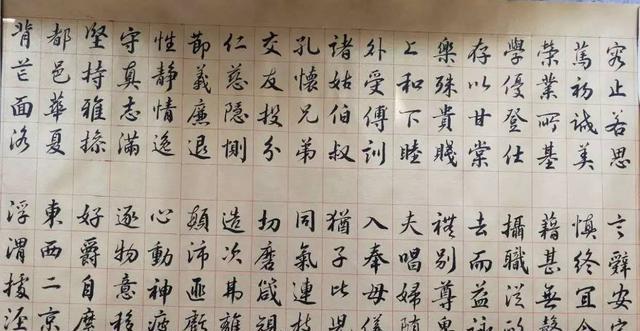 容止若思 言辭安定
篤初誠美 慎終宜令
榮業所基 藉甚無竟
學優登仕 攝職從政
存以甘棠 去而益詠
樂殊貴賤 禮別尊卑
上和下睦 夫唱婦隨
外受傅訓 入奉母儀
諸姑伯叔 猶子比兒
孔懷兄弟 同氣連枝
交友投分 切磨箴規
仁慈隱惻 造次弗離
節義廉退 顛沛匪虧
性靜情逸 心動神疲
守真志滿 逐物意移
堅持雅操 好爵自縻
都邑華夏 東西二京
背芒面洛 浮渭據涇